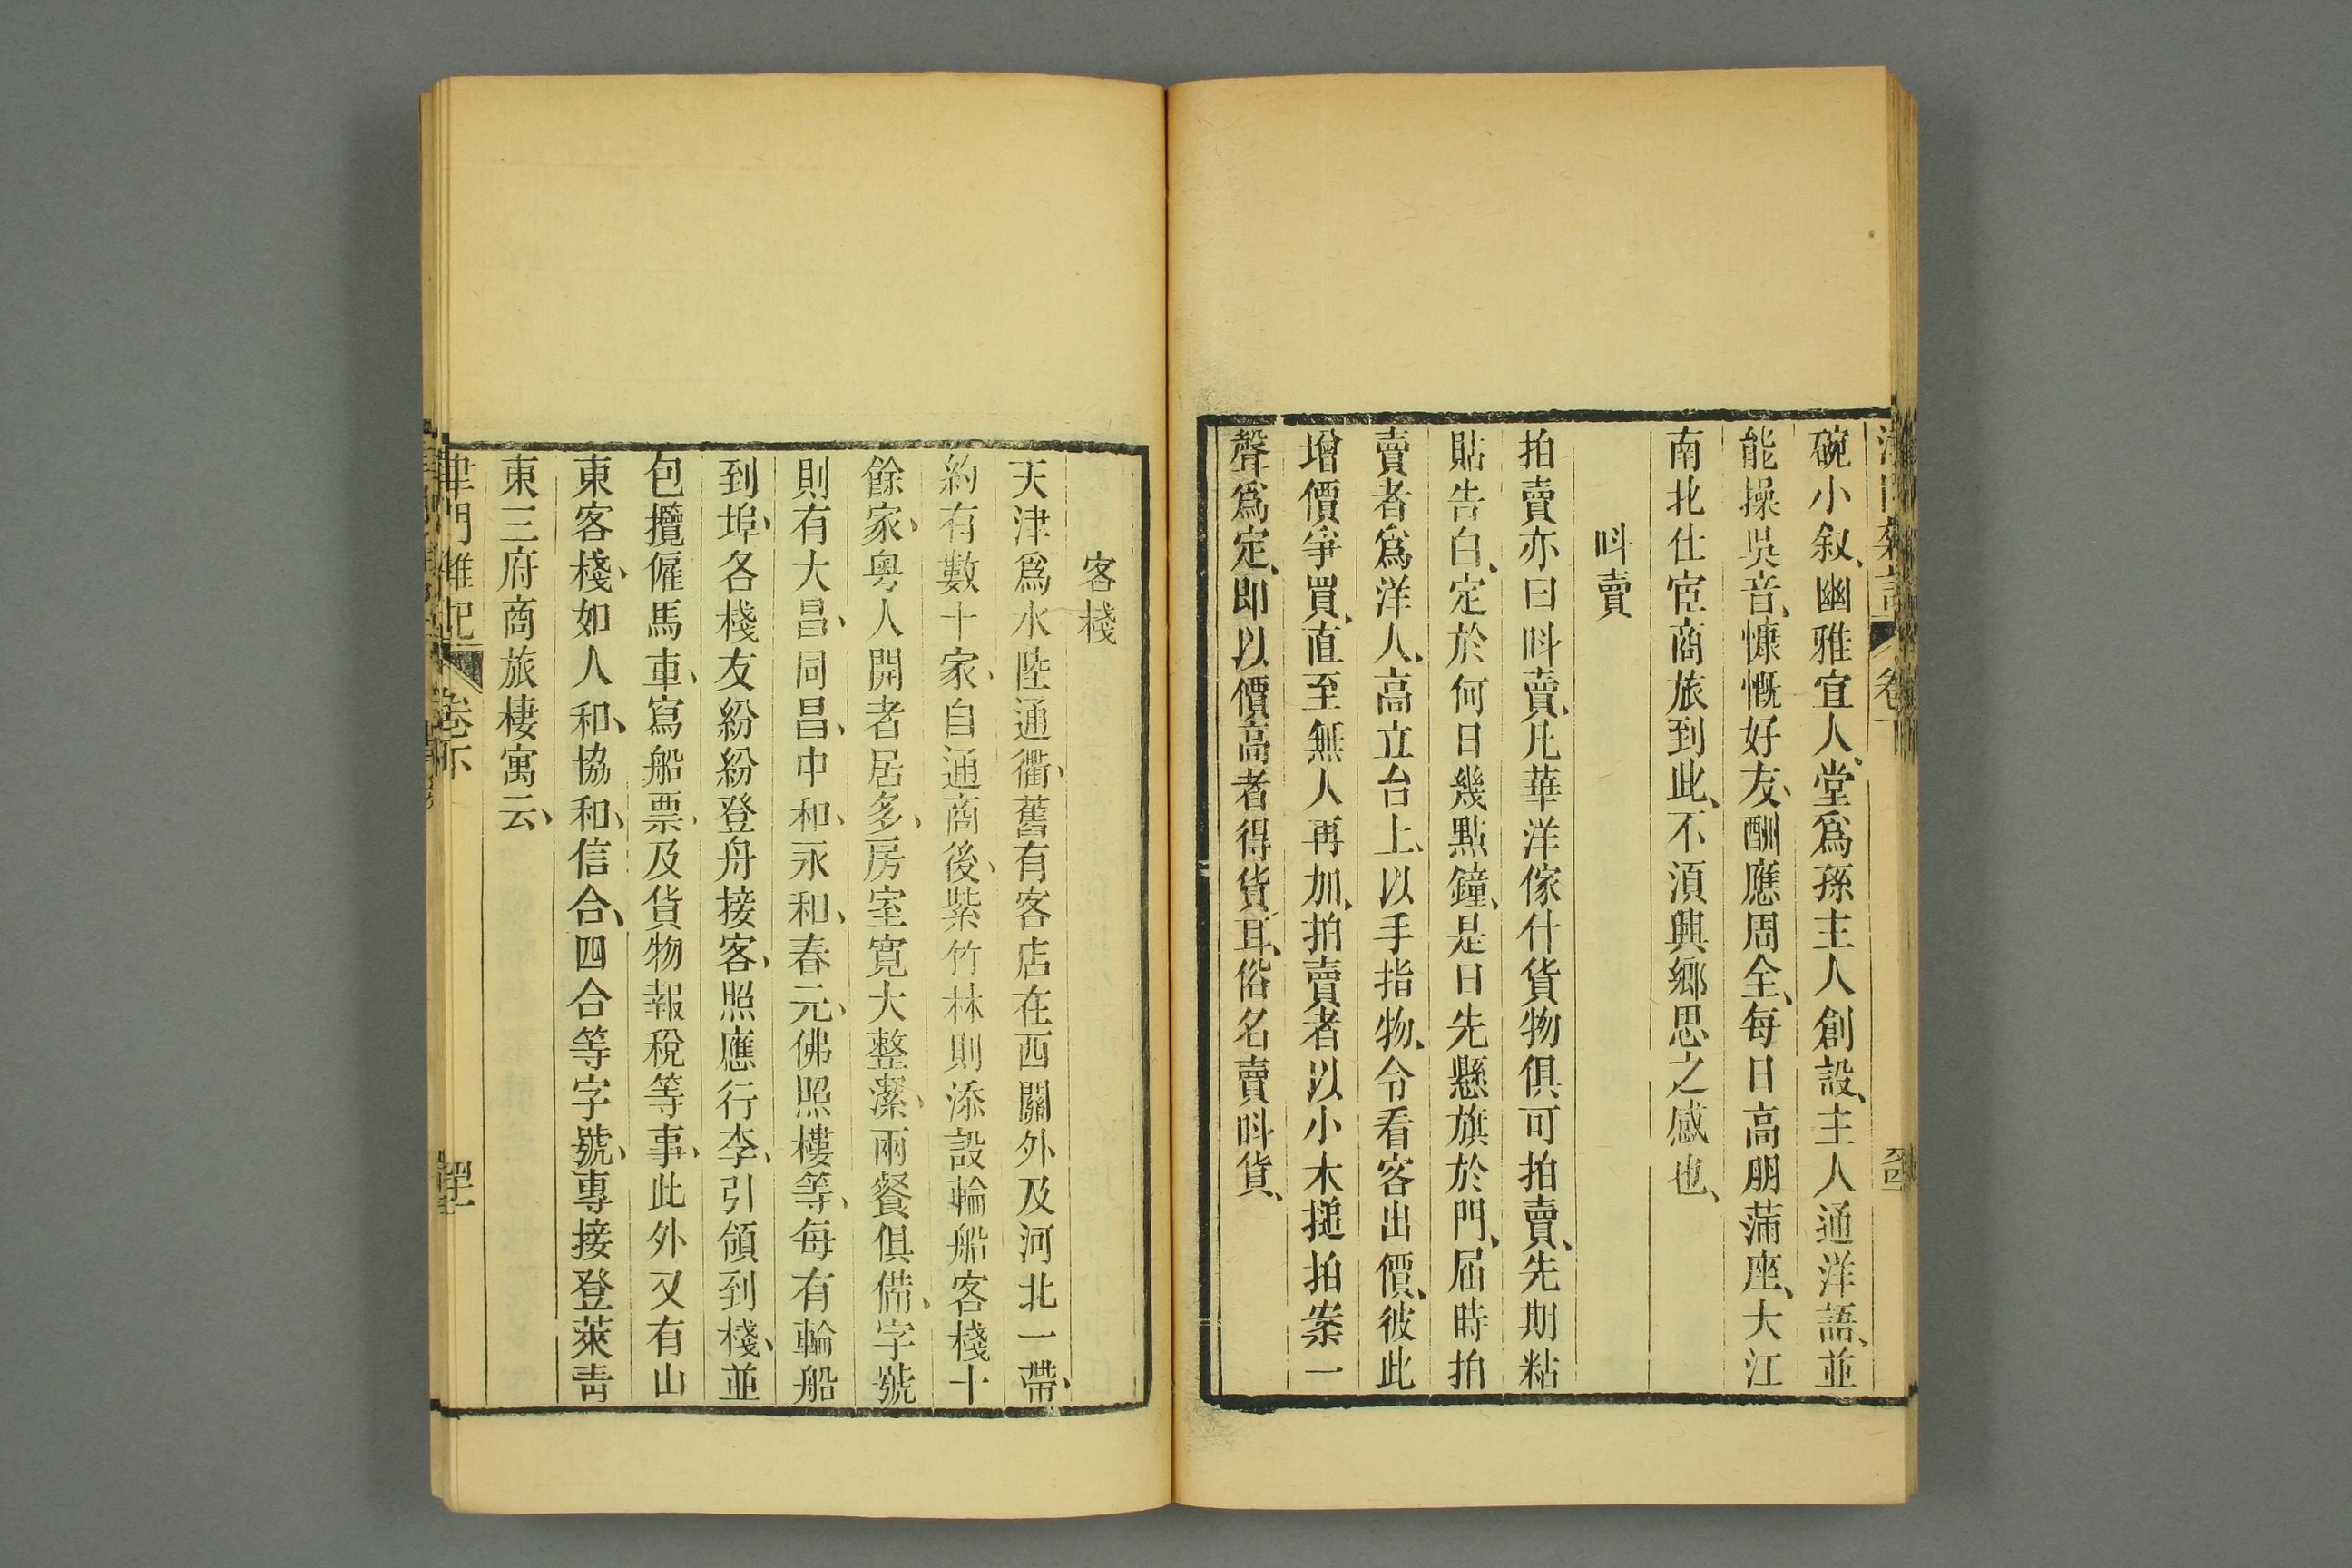 碗小叙、幽雅宜人、堂爲孫主人創設、主人通洋語、並
能操吳音、慷慨好友、酬應周全、每日高朋滿座、大江
南北仕宦商旅到此、不須興鄉思之感也、
呌賣
拍賣亦曰呌賣、凡華洋傢什貨物俱可拍賣、先期粘
貼告白、定於何日幾點鐘、是日先懸旗於門、届時拍
賣者爲洋人、高立台上、以手指物、令看客出價、彼此
增價爭買、直至無人再加、拍賣者以小木搥拍案一
聲爲定、即以價高者得貨耳、俗名賣呌貨、
客棧
天津爲水陸通衢、舊有客店在西關外及河北一帶、
約有數十家、自通商後、紫竹林則添設輪船客棧十
餘家、粵人開者居多、房室寬大整潔、兩餐俱備、字號
則有大昌、同昌、中和、永和、春元、佛照樓等、每有輪船
到埠、各棧友紛紛登舟接客、照應行李、引領到棧、並
包攬僱馬車、寫船票、及貨物報稅等事、此外又有山
東客棧、如人和、協和、信合、四合等字號、專接登萊靑
東三府商旅棲寓云、
津門雜記 卷下